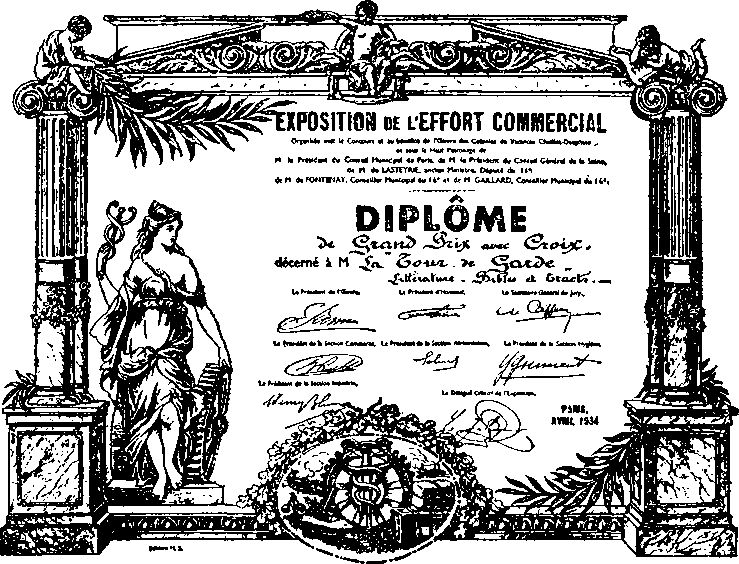 EXPOSITION DE L'EFFORT COMMERCIAL
Organisée avec le Concours et au bénéfice de l'Œuvre des Colonies de Vacances
et sous le Haut Patronage de
M. le Président du Conseil Municipal de Paris, de M. le Président du Conseil Général de la Seine,
de M. de LASTEYRIE, ancien Ministre, Député du 16e
de M. de FONTENAY, Conseiller Municipal du 16e et de M. GAILLARD, Conseiller Municipal du 16e,
DIPLÔME
de Grand Prix avec Croix.
décerné à M "La Tour de Garde"
Littérature - Bibles et Tracts.
Le Président de l'Œuvre, Le Président d'Honneur, Le Secrétaire Général du Jury,
Le Président de la Section Commerce, Le Président de la Section Alimentation, Le Président de la Section Hygiène,
Le Président de la Section Industrie,
Le Délégué Officiel de l'Exposition,
PARIS,
AVRIL 1934